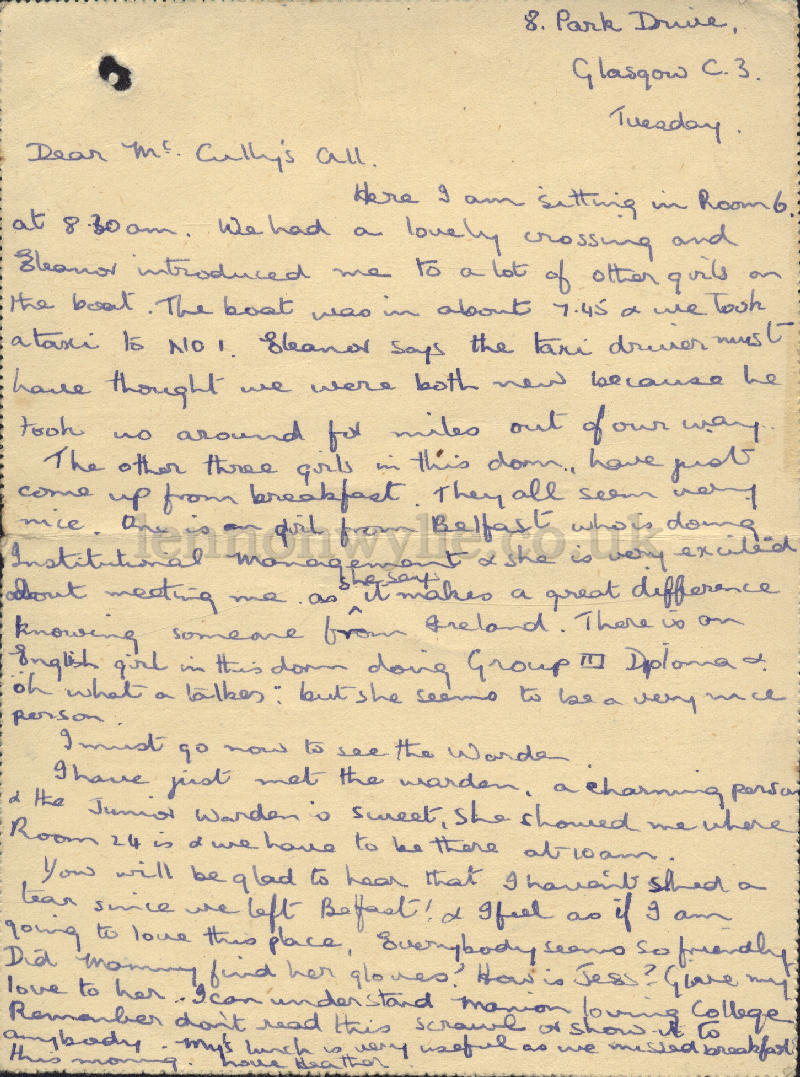 8. Park Drive,
Glasgow C.3.
Tuesday.
Dear Mc. Cully's All.
Here I am sitting in Room 6.
at 8.30am. We had a lovely crossing and
Eleanor introduced me to a lot of other girls on
the boat. The boat was in about 7.45 & we took
a taxi to NO 1. Eleanor says the taxi driver must
have thought we were both new because he
took us around for miles out of our way.
The other three girls in this dorm, have just
come up from breakfast. They all seem very
nice. One is an girl from Belfast who is doing
lennonwylie.co.uk
Institutional Management & she is very excited
about meeting me. as she says it makes a great difference
knowing someone from Ireland. There is an
English girl in this dorm doing Group III Diploma &
oh what a talker: but she seems to be a very nice
person.
I must go now to see the Warden.
I have just met the warden, a charming person
& the Junior Warden is sweet, She showed me where
Room 24 is & we have to be there at 10am.
You will be glad to hear that I haven't shed a
tear since we left Belfast! & I feel as if I am
going to love this place, Everybody seems so friendly
Did Mammy find her gloves? How is Jess? Give my
love to her. I can understand Marion loving College
Remember don't read this scrawl or show it to
anybody. My's lunch is very useful as we missed breakfast
this morning. Love Heather.